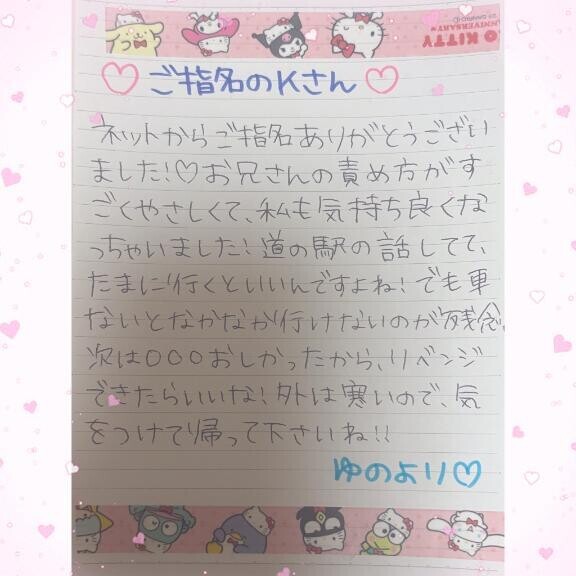 KITTY
ANNIVERSARY
ご指名のKさん
ネットからご指名ありがとうござい
ました!♡お兄さんの責め方がす
ごくやさしくて、私も気持ち良くな
っちゃいました!道の駅の話してて、
たまに行くといいんですよね!でも車
ないとなかなか行けないのが残念、
次は〇〇〇おしかったから、リベンジ
できたらいいな!外は寒いので、気
をつけて帰って下さいね!!
ゆのより♡